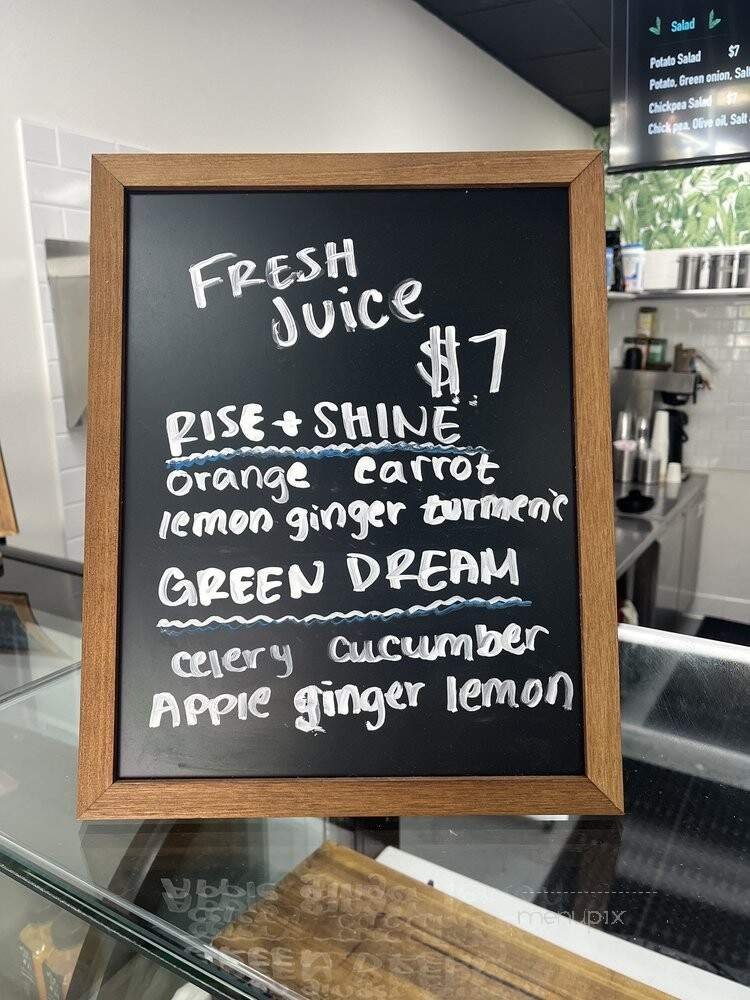 Salad
Potato Salad $7
Potato, Green onion, Salt
Chickpea Salad $7
Chick pea, Olive oil, Salt
FRESH
Juice
$7
RISE + SHINE
orange carrot
lemon ginger turmeric
GREEN DREAM
celery cucumber
Apple ginger lemon
menupix